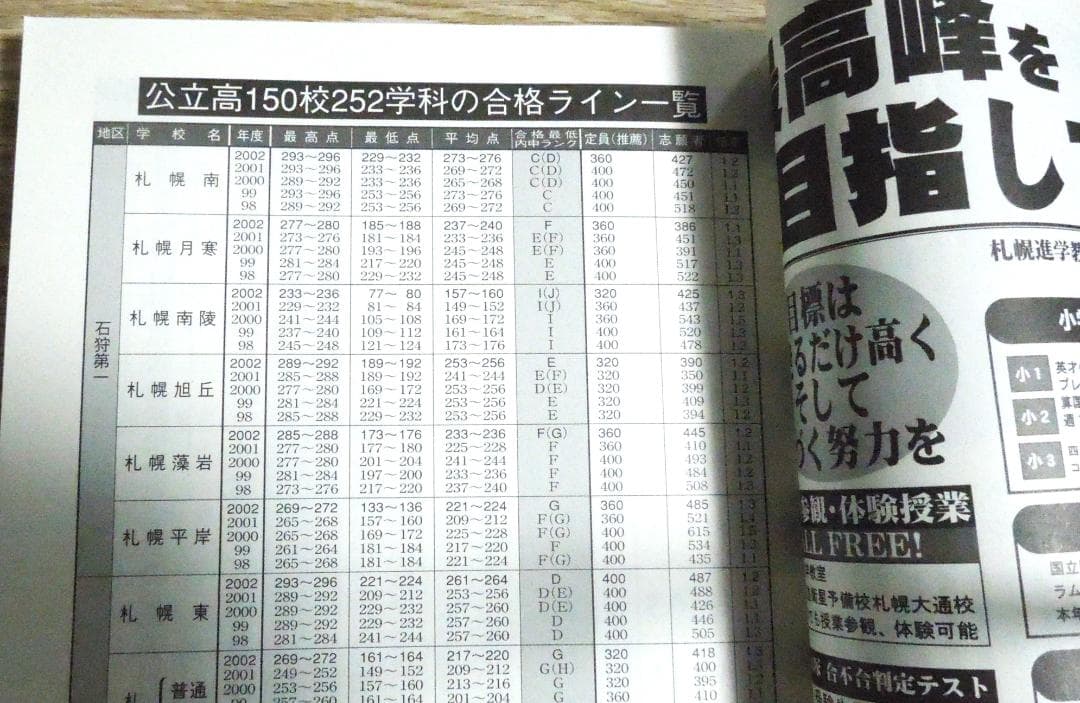 公立高150校252学科の合格ライン一覧
地区 学校名 年度 最高点 最低点 平均点 合格最低内申ランク 定員(推薦) 志願者
石狩第一
札幌南
2002 293～296 229～232 273～276 C(D) 360 427 1.2
2001 293～296 233～236 269～272 C(D) 400 472 1.2
2000 289～292 233～236 265～268 C(D) 400 450 1.1
99 293～296 253～256 273～276 C 400 451 1.1
98 289～292 253～256 269～272 C 400 518 1.2
札幌月寒
2002 277～280 185～188 237～240 F 360 386 1.1
2001 273～276 181～184 233～236 E(F) 360 451 1.3
2000 277～280 193～196 245～248 E(F) 360 391 1.1
99 281～284 217～220 245～248 E 400 517 1.3
98 277～280 229～232 245～248 E 400 522 1.3
札幌南陵
2002 233～236 77～80 157～160 I(J) 320 425 1.3
2001 229～232 81～84 149～152 I(J) 360 437 1.2
2000 241～244 105～108 169～172 I 360 543 1.5
99 237～240 109～112 161～164 I 400 520 1.3
98 245～248 121～124 173～176 I 400 478 1.2
札幌旭丘
2002 289～292 189～192 253～256 E 320 390 1.2
2001 285～288 189～192 241～244 E(F) 320 350 1.1
2000 277～280 169～172 253～256 D(E) 320 399 1.2
99 281～284 221～224 253～256 E 320 409 1.3
98 285～288 229～232 253～256 E 320 394 1.2
札幌藻岩
2002 285～288 173～176 233～236 F(G) 360 445 1.2
2001 277～280 177～180 225～228 F 360 410 1.1
2000 277～280 201～204 241～244 F 400 493 1.2
99 281～284 197～200 233～236 F 400 484 1.2
98 273～276 217～220 237～240 F 400 508 1.3
札幌平岸
2002 269～272 133～136 221～224 G 360 485 1.3
2001 265～268 157～160 209～212 F(G) 360 521 1.4
2000 265～268 169～172 225～228 F(G) 400 615 1.5
99 261～264 181～184 217～220 F 400 534 1.3
98 265～268 181～184 221～224 F(G) 400 435 1.1
札幌東
2002 293～296 221～224 261～264 D 400 487 1.2
2001 289～292 209～212 253～256 D(E) 400 488 1.2
2000 289～292 229～232 257～260 D(E) 400 426 1.1
99 289～292 229～232 257～260 D 400 446 1.1
98 281～284 241～244 257～260 D 400 505 1.3
札 普通
2002 269～272 161～164 217～220 G 320 418
2001 249～252 149～152 209～212 G(H) 320 400
2000 253～256 157～160 213～216 G 320 395
99 257～260 201～204 G 360 410
高峰を
目指し
札幌進学教
目標は
るだけ高く
そして
づく努力を
参観・体験授業
FREE!
教室
予備校札幌大通校
授業参観、体験可能
合不合判定テスト
小1
小2
小3
国立
ラム
本年